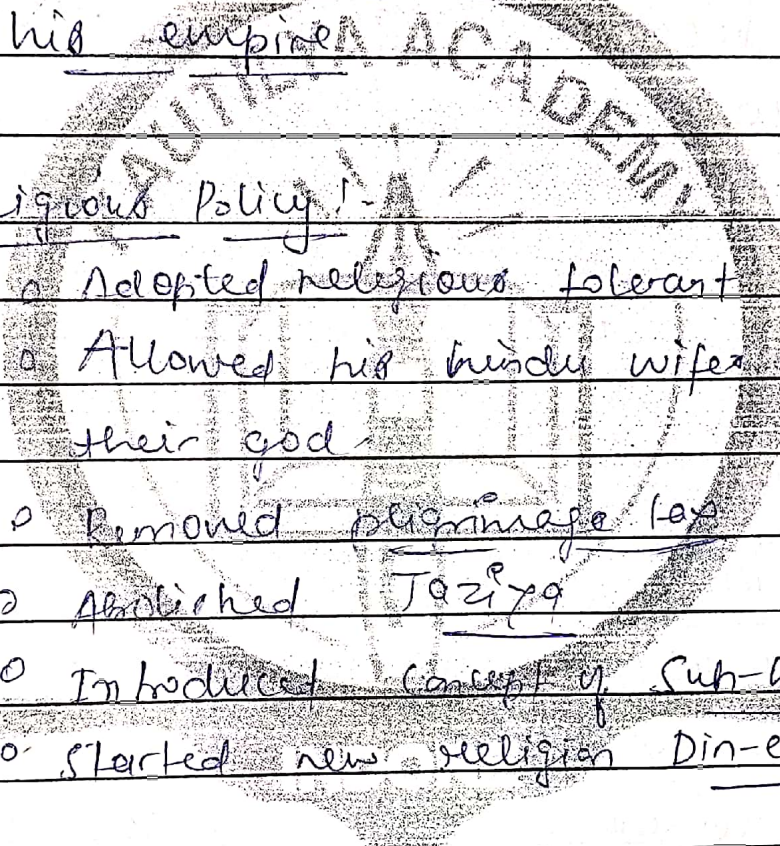 his empire
KAUTILYA ACADEMY
igious Policy :-
Adopted religious tolerant
Allowed his hindu wifes
their god
Removed piligrimage tax
Abolished Jaziya
Introduced concept of Suh-
Started new religion Din-e